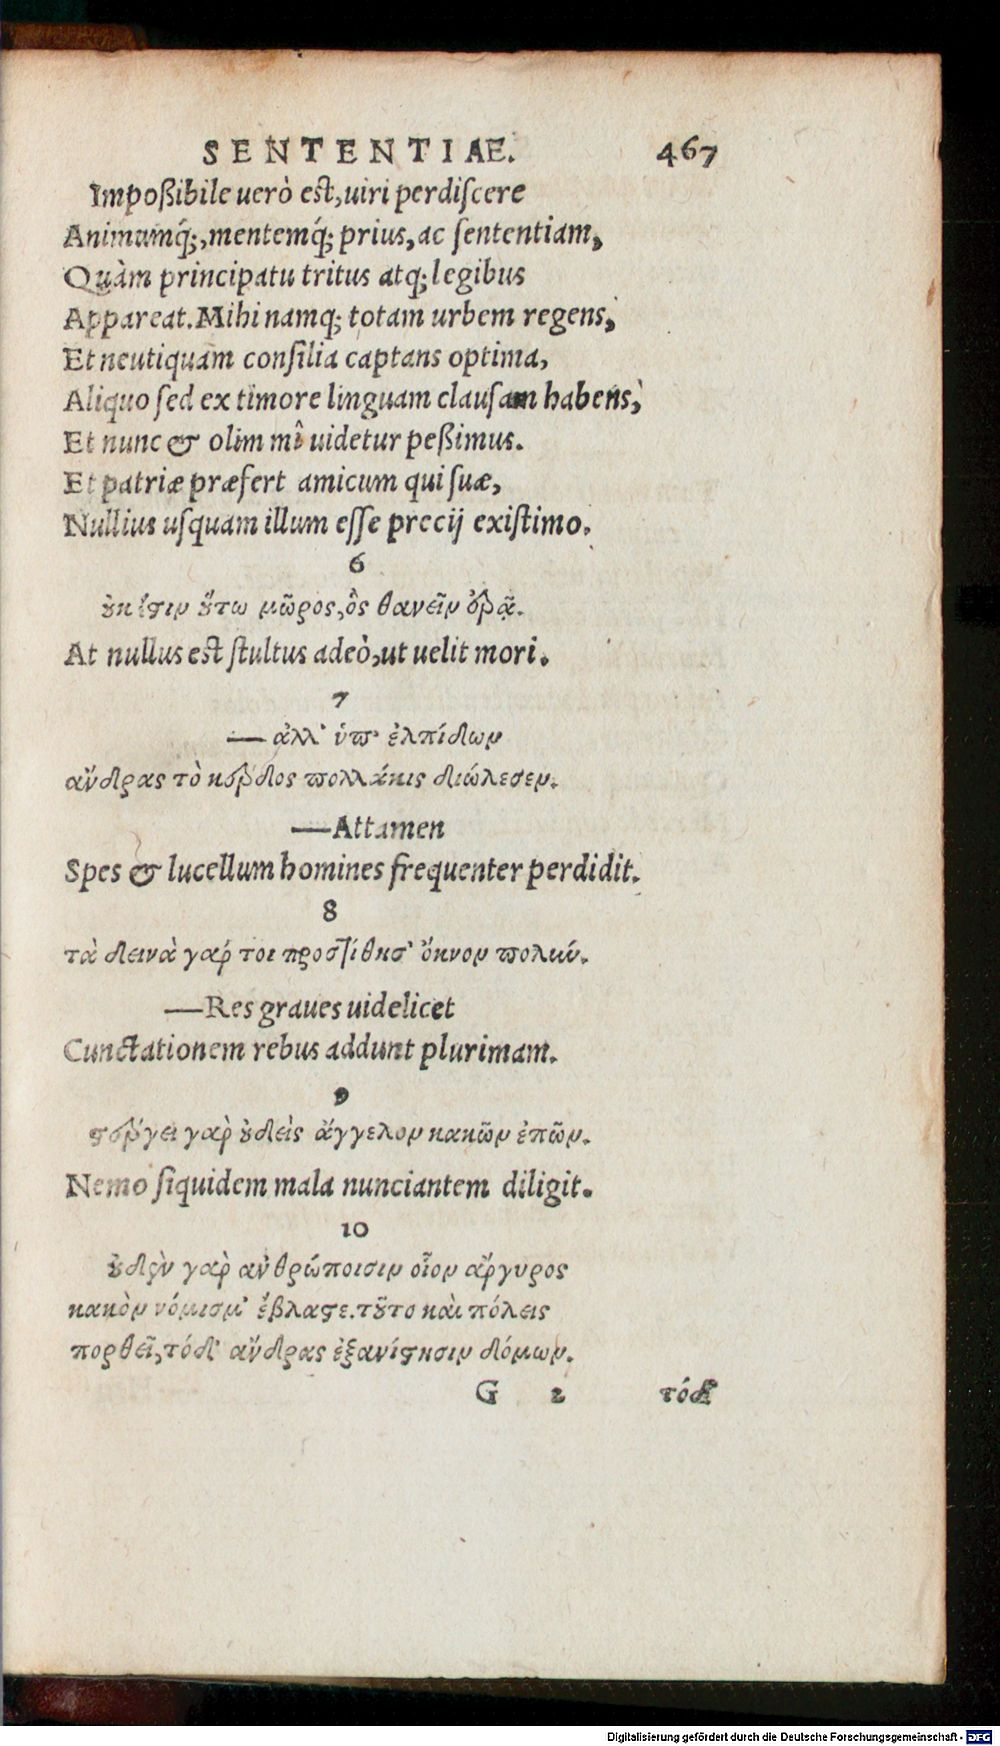 SENTENTIAE. 467
Impoßibile uerò est, uiri perdiſcere
Animumq́;, mentemq́; prius, ac ſententiam,
Quàm principatu tritus atq; legibus
Appareat. Mihi namq; totam urbem regens,
Et neutiquam conſilia captans optima,
Aliquo ſed ex timore linguam clauſam habens,
Et nunc & olim mî uidetur peßimus.
Et patriæ præfert amicum qui ſuæ,
Nullius uſquam illum eſſe precij exiſtimo.
6
ȣκ ἔϛιν ὅτω μῶρος, ὃς θανεῖν ἐρᾷ.
At nullus est ſtultus adeò, ut uelit mori.
7
— ἀλλ' ὑπ' ἐλπίδων
ἄνδρας τὸ κέρδος πολλάκις διώλεσεν.
—Attamen
Spes & lucellum homines frequenter perdidit.
8
τὰ δεινὰ γάρ τοι προστίθησ' ὄκνον πολύν.
—Res graues uidelicet
Cunctationem rebus addunt plurimam.
9
ϛέργει γὰρ ȣ̓δεὶς ἄγγελον κακῶν ἐπῶν.
Nemo ſiquidem mala nunciantem diligit.
10
ȣ̓δὲν γὰρ ἀνθρώποισιν οἷον ἄργυρος
κακὸν νόμισμ' ἔβλαϛε. τȣ͂το καὶ πόλεις
πορθεῖ, τόδ' ἄνδρας ἐξανίϛησιν δόμων.
G 2 τόδ'
Digitalisierung gefördert durch die Deutsche Forschungsgemeinschaft - DFG